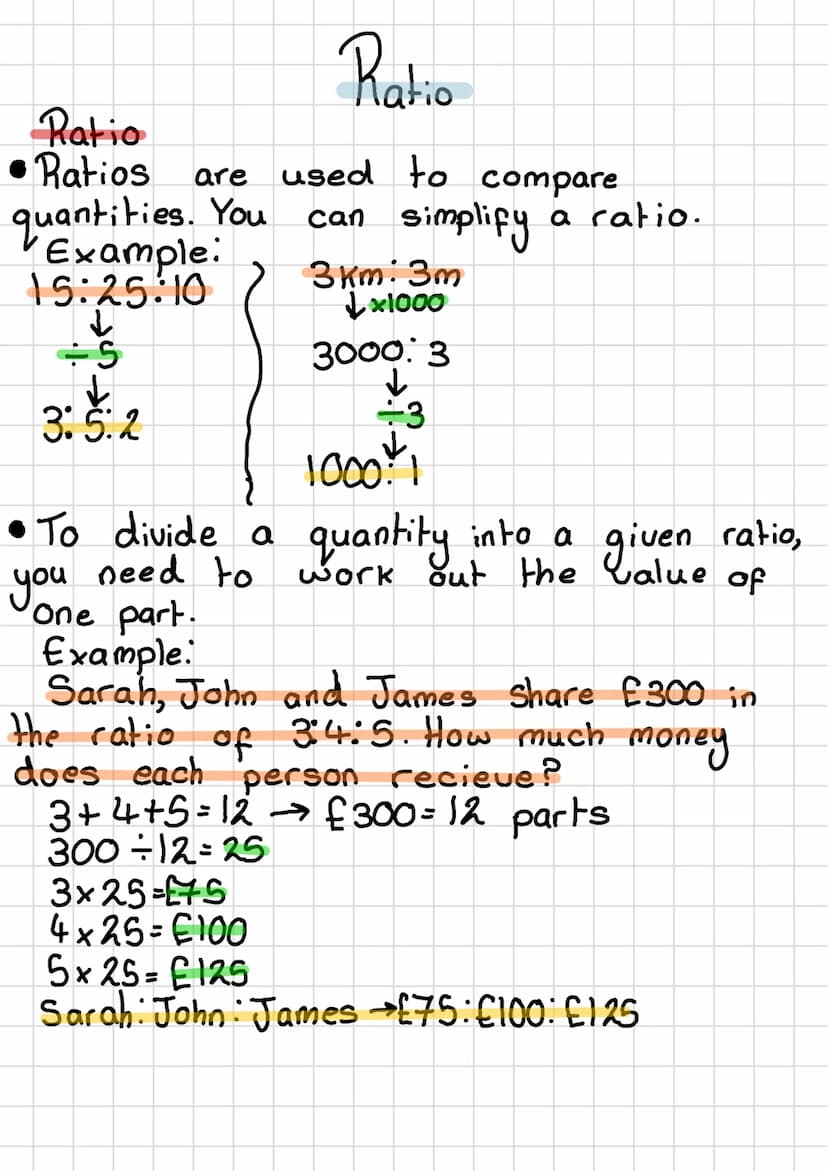 Ratio
Ratio
• Ratios are used to compare
quantities. You can simplify a ratio.
Example:
15:25:10
↓
÷5
↓
3:5:2
3km:3m
↓ x1000
3000:3
↓
÷3
↓
1000:1
• To divide a quantity into a given ratio,
you need to work out the value of
one part.
Example:
Sarah, John and James share £300 in
the ratio of 3:4:5. How much money
does each person recieve?
3+4+5=12 → £300=12 parts
300÷12=25
3x25=£75
4x25=£100
5x25=£125
Sarah:John:James →£75:£100:£125